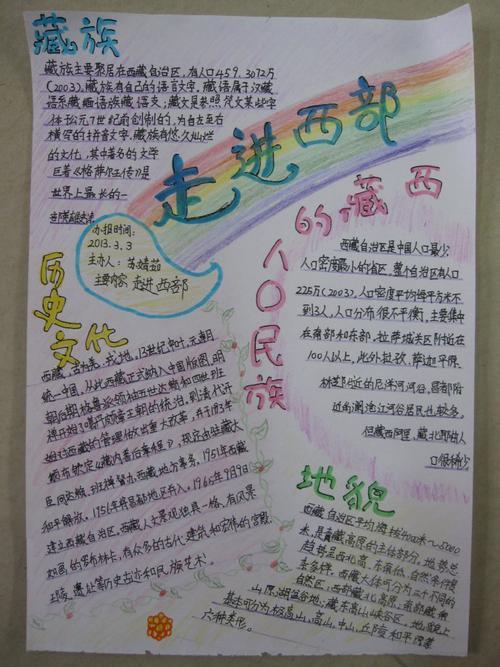 藏族
藏族主要聚居在西藏自治区,有人口459.3072万
(2003),藏族有自己的语言文字,藏语属于汉藏
语系藏缅语族藏语支;藏文是参照梵文某些字
体于公元7世纪前创制的,为自左至右
横写的拼音文字,藏族有悠久灿烂
的文化,其中著名的文学
巨著《格萨尔王传》是
世界上最长的一
走进西部
办报时间:
2013.3.3
主办人:苏婧茹
主要内容:走进西部
西藏的
人口民族
西藏自治区是中国人口最少
人口密度最小的省区,整个自治区有人口
225万(2003),人口密度平均每平方米不
到3人,人口分布很不平衡,主要集中
在南部和东部,拉萨城关区附近在
100人以上,此外拉孜、萨迦平原、
林芝附近的尼洋河河谷,昌都附
近的澜沧江河谷居民也较多。
但藏西阿里、藏北那曲人
口很稀少
历史文化
西藏,古称羌、戎地。13世纪中叶,元朝
统一中国,从此西藏正式纳入中国版图,明
朝后期,格鲁派领袖五世达赖和四世班
禅开始了噶丹颇章王朝的统治,到清代开
始对西藏的管理做出重大改革,并于1793年
颁布钦定《藏内善后章程》,规定由驻藏大
臣同达赖、班禅督办西藏地方事务,1951年西藏
和平解放,1956年将昌都地区并入,1965年9月9日
建立西藏自治区,西藏人文景观独具一格,有风景
如画的罗布林卡,有众多的古代建筑和宏伟的宫殿、
王陵、遗址等历史古迹和民族艺术!
地貌
西藏自治区平均海拔4000米~5000
米,是青藏高原的主体部分,地势总
趋势是西北高,东南低,自然条件复
杂多样,西藏大体可分为三个不同的
自然区,西部高原,南部藏南
山原,湖盆谷地,藏东高山峡谷区,地貌上
基本可分为极高山、高山、中山、丘陵和平原等
六种类形。